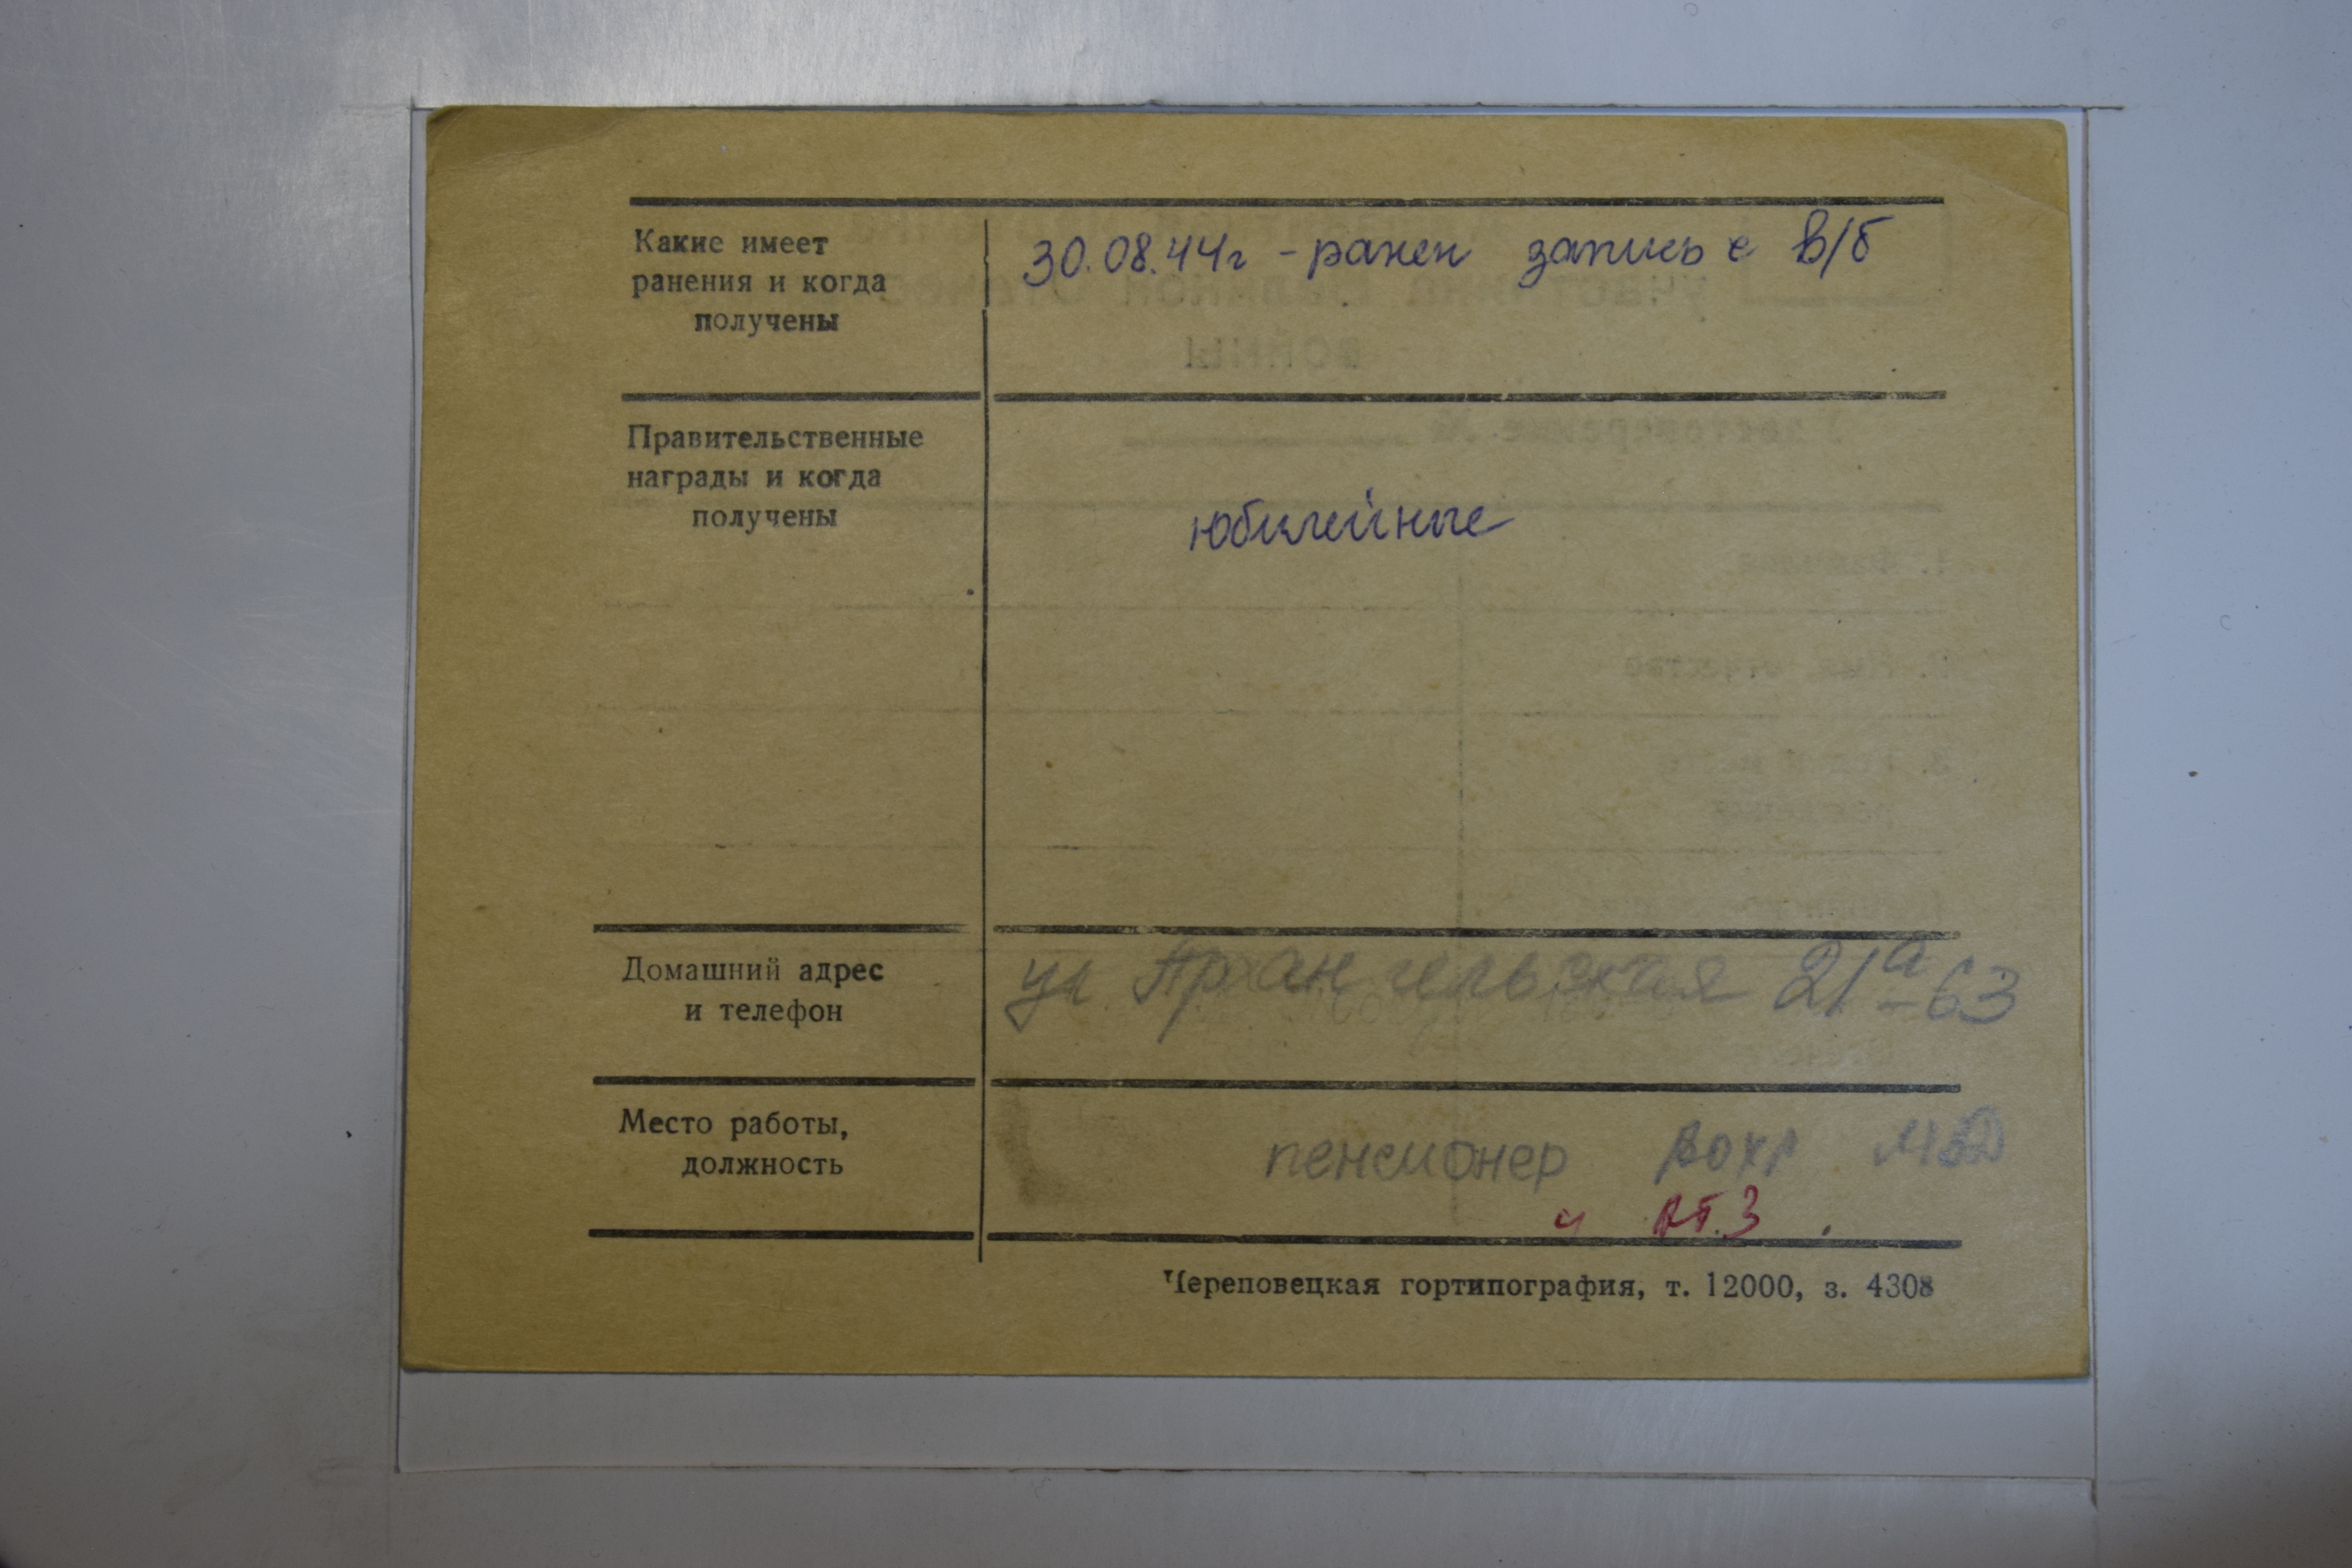 Какие имеет
ранения и когда
получены
30.08.44г - ранен запись с в/б
Правительственные
награды и когда
получены
юбилейные
Домашний адрес
и телефон
ул. Архангельская 21а-63
Место работы,
должность
пенсионер ВОХР
Череповецкая гортипография, т. 12000, з. 4308